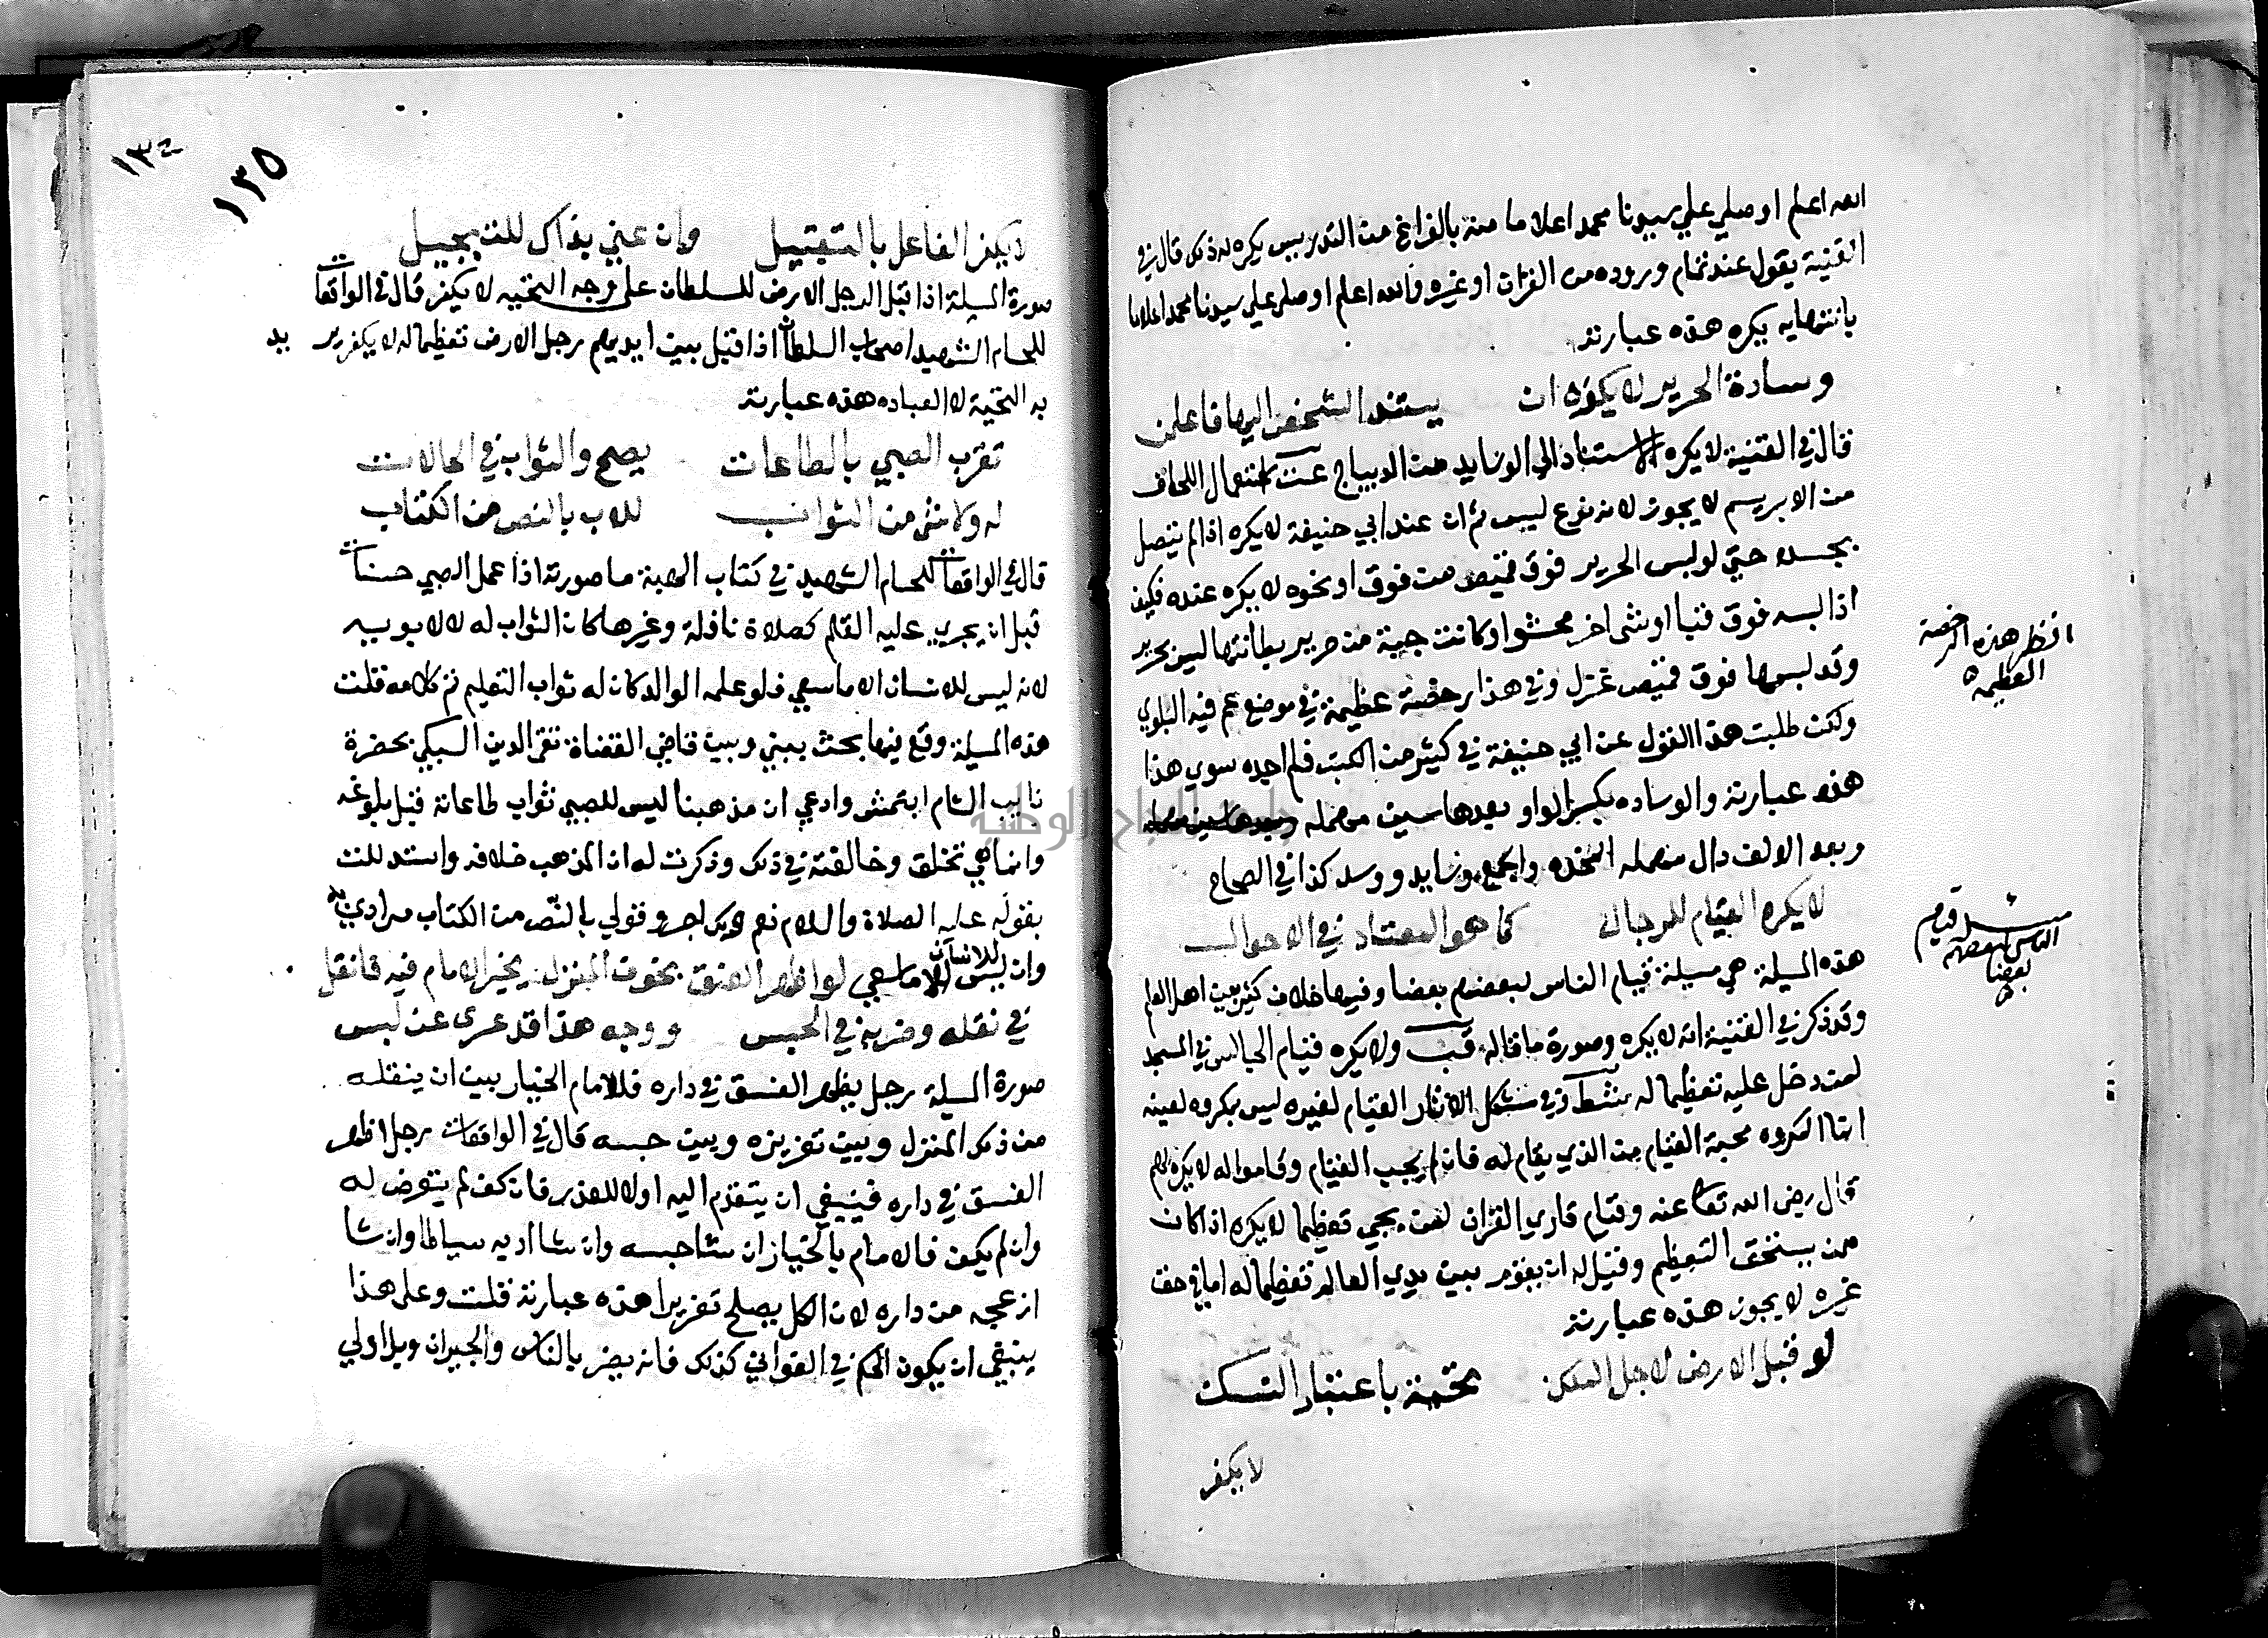 الله اعلم او صلي علي سيدنا محمد اعلاما منه بالفراغ من التدريس يكره له ذلك قال في
القنية يقول عند تمام وروده من القران او غيره والله اعلم او صلي علي سيدنا محمد اعلاما
بانتهايه يكره هذه عبارته
وسادة الحرير لا يكره ان يستند الشخص اليها فاعلمن
قال في القنية لا يكره الاستناد الي الوسايد من الديباج عت استعمال اللحاف
من الابريسم لا يجوز لانه نوع لبس ثم ان عند ابي حنيفة لا يكره اذا لم يتصل
بجسده حتي لو لبس الحرير فوق قميص من فوق او نحوه لا يكره عنده فكيف
اذا لبسه فوق قبا او شي اخر محشو او كانت جبة من حرير بطانتها ليس بحرير
وقد لبسها فوق قميص غزل وفي هذا رخصة عظيمة في موضع عم فيه البلوي
ولكن طلبت هذا القول عن ابي حنيفة في كثير من الكتب فلم اجده سوي هذا
هذه عبارته والوساده بكسر الواو بعدها سين مهمله
وبعد الالف دال مهمله المخده والجمع وسايد ووسد كذا في الصحاح
لا يكره القيام للرجال كما هو المعتاد في الاحوال
هذه المسيلة هي مسيلة قيام الناس لبعضهم بعضا وفيها خلاف كثير بين اهل العلم
وقد ذكر في القنية انه لا يكره وصورة ما قاله قب ولا يكره قيام الجالس في المسجد
لمن دخل عليه تعظيما له شط وفي مشكل الاثار القيام لغيره ليس بمكروه لعينه
انما المكروه محبة القيام من الذي يقام له فان لم يحب القيام وقاموا له لا يكره لهم
قال رضي الله تعا عنه وقيام قاري القران لمن يجي تعظيما لا يكره اذا كان
ممن يستحق التعظيم وقيل له ان يقوم بين يدي العالم تعظيما له اما في حق
غيره لا يجوز هذه عبارته
لو قبل الارض لاجل الملك تحية باعتبار النسك
لا يكفر
انظر هذه الرخصة
العظيمه
قيام
الناس لبعضهم
بعضا
١٣٤
١٣٥
لا يكفر الفاعل بالتقبيل وان عني بذاك للتبجيل
صورة المسيلة اذا قبل الرجل الارض للسلطان علي وجه التحيه لا يكفر قال في الواقعات
للحسام الشهيد اصحاب السلطان اذا قبل بين ايديهم رجل الارض تعظيما له لا يكفر يريد
به التحية لا العباده هذه عبارته
تقرب الصبي بالطاعات يصح والثواب في الحالات
له ولا شي من الثواب للاب بالنص من الكتاب
قال في الواقعات للحسام الشهيد في كتاب الهبة ما صورته اذا عمل الصبي حسنات
قبل ان يجري عليه القلم كصلاة نافلة وغيرها كان الثواب له لا لابويه
لانه ليس للانسان الا ما سعي فلو علمه الوالد كان له ثواب التعليم تم كلامه قلت
هذه المسيلة وقع فيها بحث بيني وبين قاضي القضاة تقي الدين السبكي بحضرة
نايب الشام ايتمش وادعي ان مذهبنا ليس للصبي ثواب طاعاته قبل بلوغه
وانما هي تخلق وخالفته في ذلك وذكرت له ان المذهب خلافه واستدللت
بقوله عليه الصلاة والسلام نعم ولك اجر وقولي بالنص من الكتاب مرادي به
وان ليس للانسان الا ما سعي لو اظهر الفسق بخوف المنزل يخير الامام فيه فانقل
في نقله وضربه في الحبس ووجه هذا قد عري عن لبس
صورة المسيلة رجل يظهر الفسق في داره فللامام الخيار بين ان ينقله
من ذلك المنزل وبين تعزيزه وبين حبسه قال في الواقعات رجل اظهر
الفسق في داره فينبغي ان يتقدم اليه اولا للعذر فان كف لم يتعرض له
وان لم يكف فالامام بالخيار ان شا حبسه وان شا ادبه سياطا وان شا
ازعجه من داره لان الكل يصلح تعزيرا هذه عبارته قلت وعلي هذا
ينبغي ان يكون الحكم في الغواني كذلك فانه يضر بالناس والجيران وبل اولي